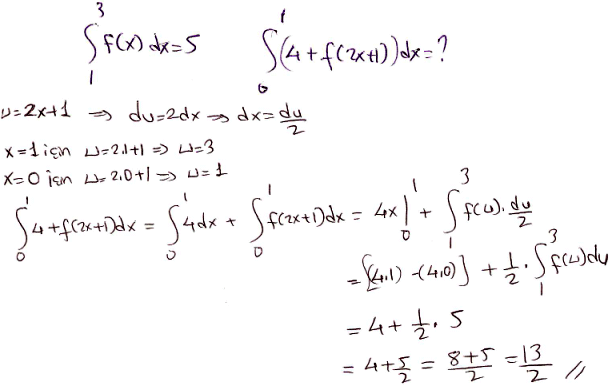 ∫₁³ f(x) dx = 5    ∫₀¹ (4 + f(2x+1)) dx = ?
u=2x+1 ⇒ du=2dx ⇒ dx= du/2
x=1 için u=2.1+1 ⇒ u=3
x=0 için u=2.0+1 ⇒ u=1
∫₀¹ 4+f(2x+1)dx = ∫₀¹ 4dx + ∫₀¹ f(2x+1)dx = 4x|₀¹ + ∫₁³ f(u). du/2
= [(4.1) - (4.0)] + 1/2 . ∫₁³ f(u)du
= 4 + 1/2 . 5
= 4 + 5/2 = 8+5/2 = 13/2 //